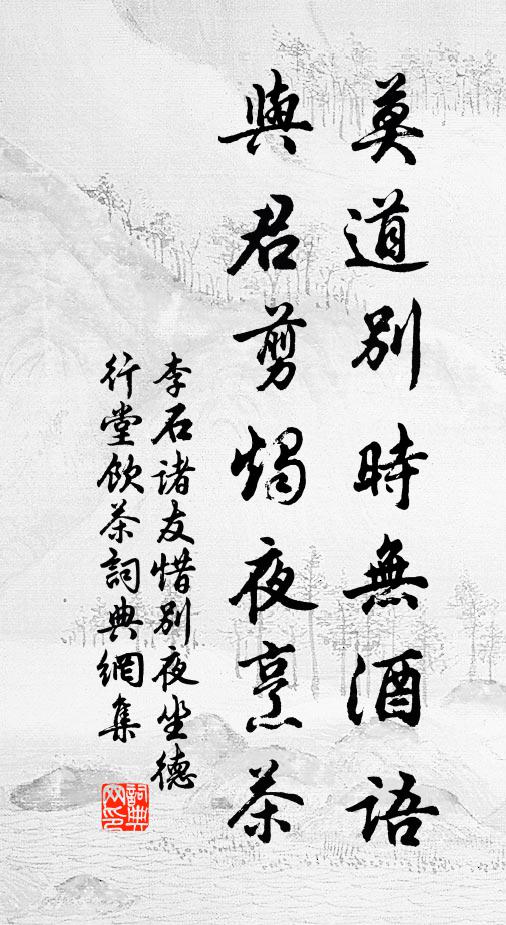 莫道別時無酒語
與君剪燭夜烹茶
李石諸友惜別夜坐德
行堂飲茶詞典網集
詞典网印